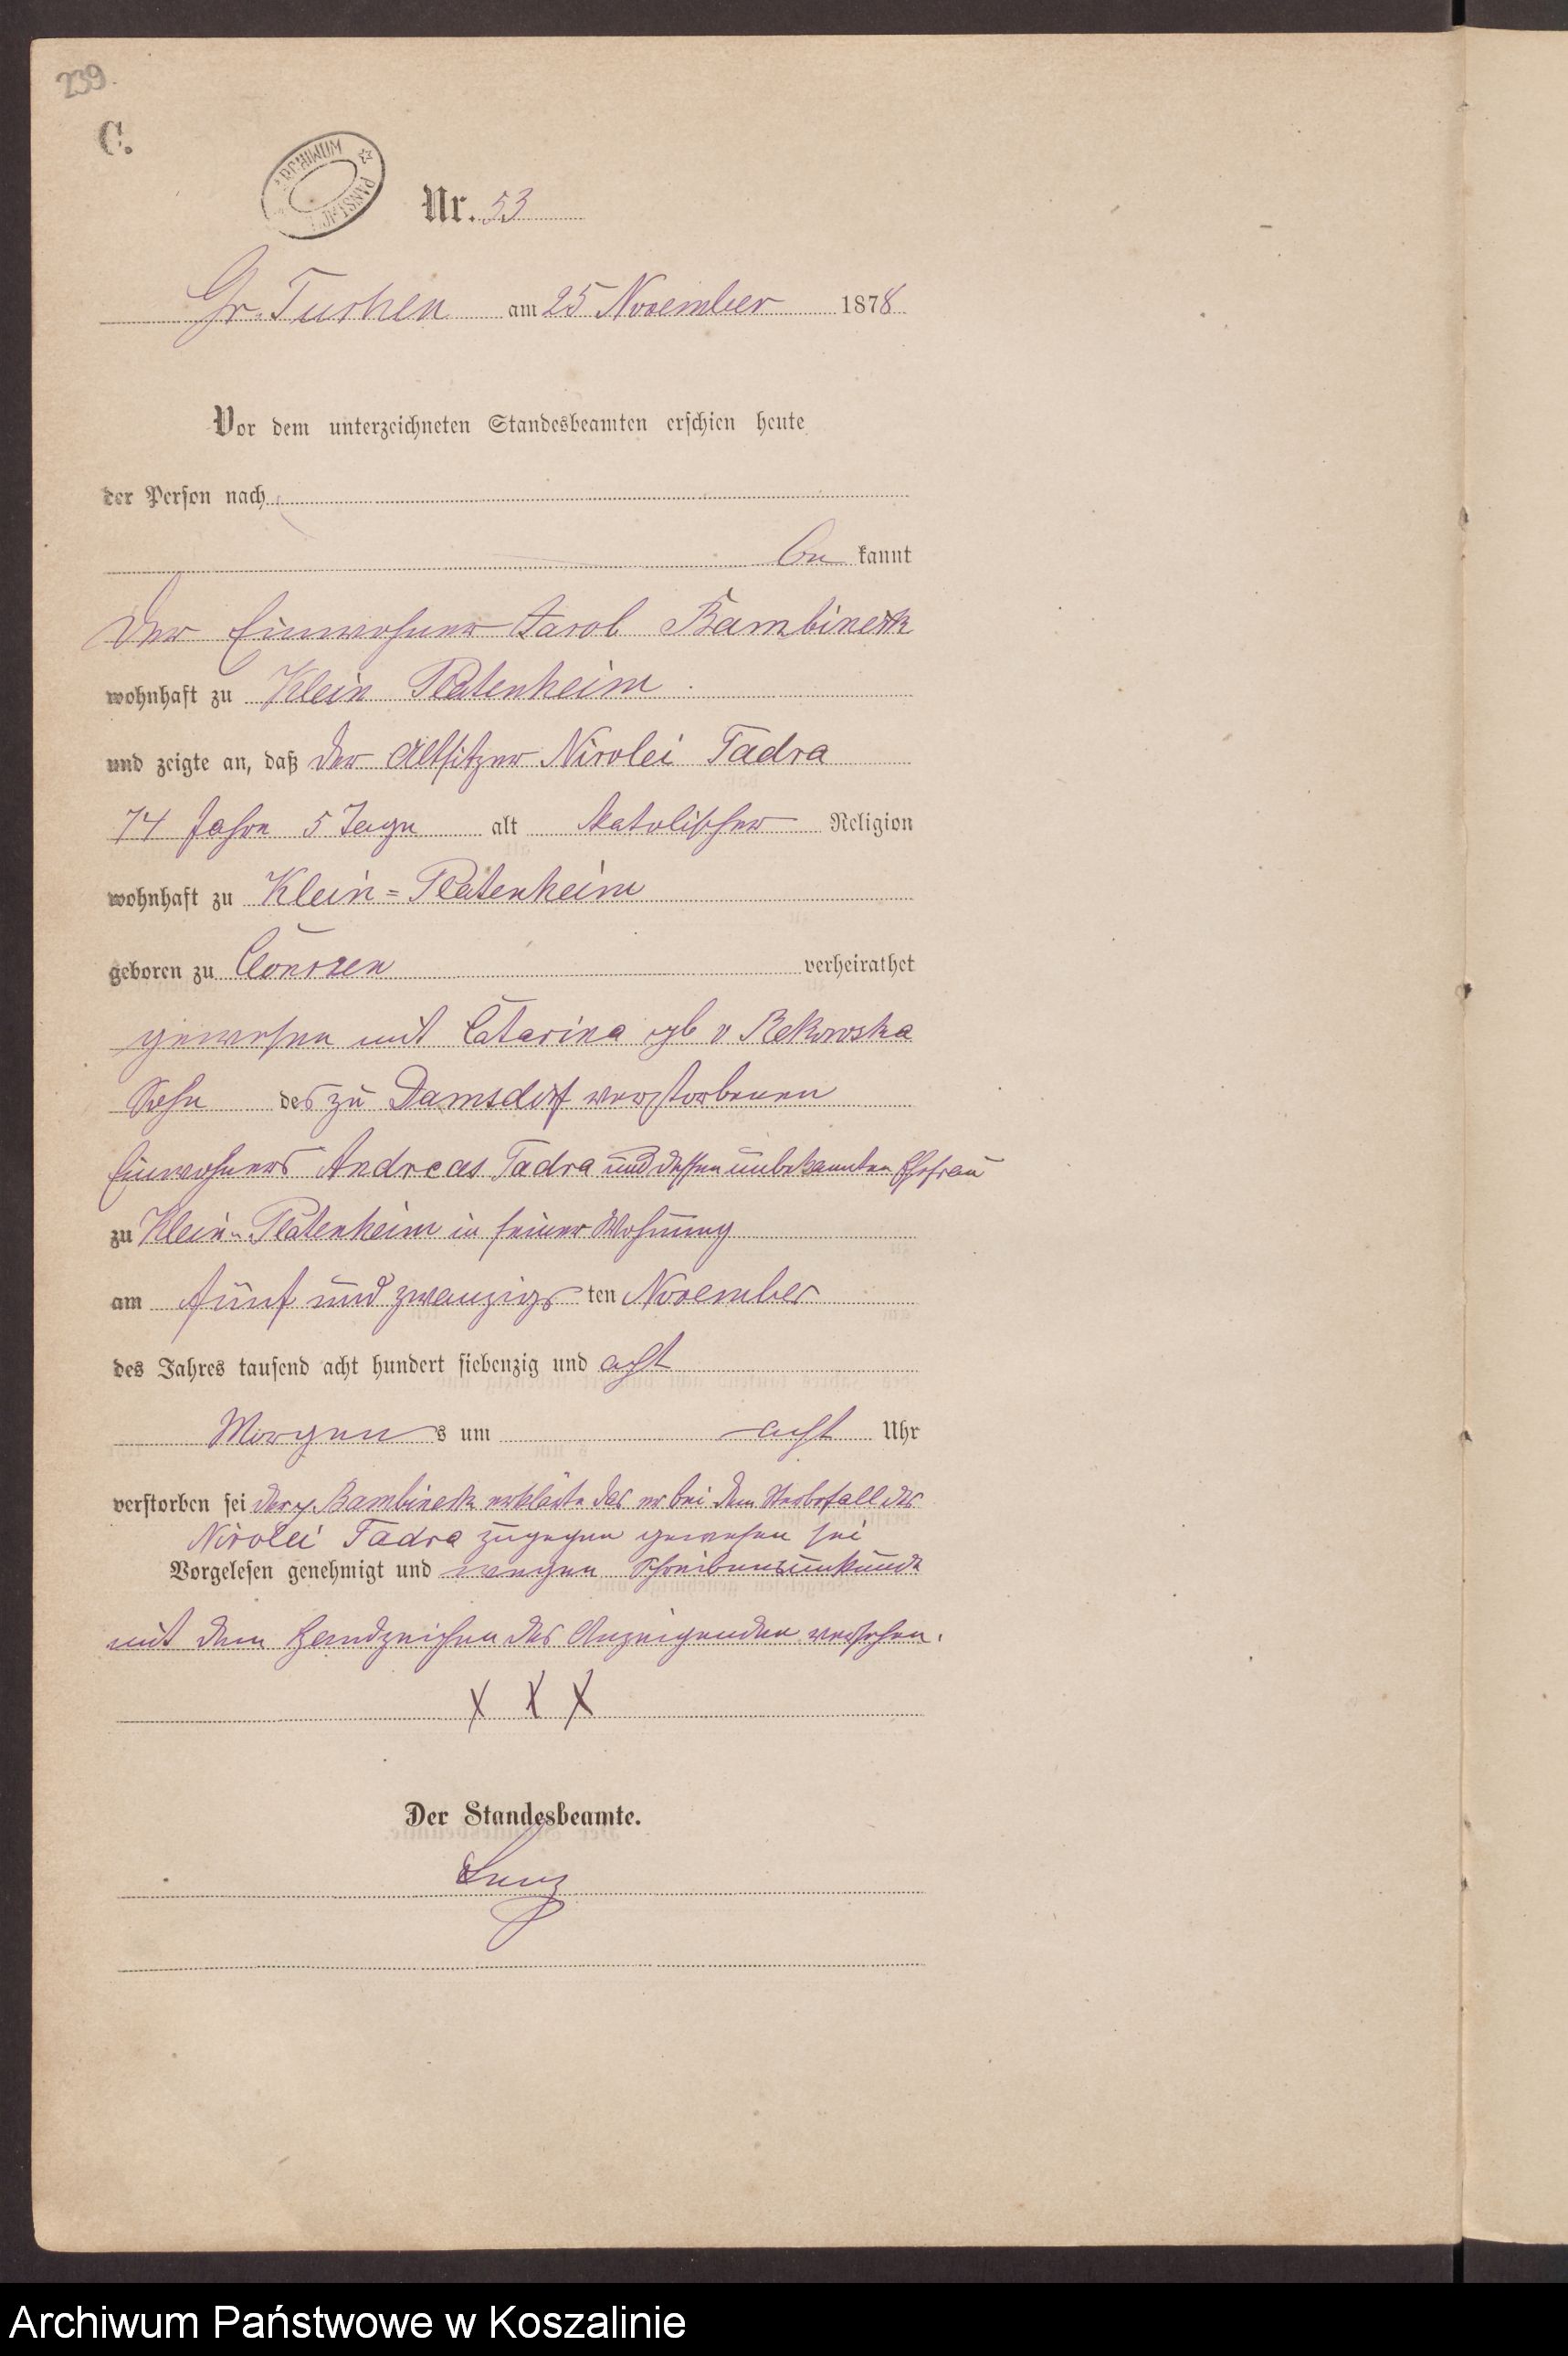 239.
C.
ARCHIWUM PAŃSTW
Nr. 53
Gr. Tuchen am 25 November 1878
Vor dem unterzeichneten Standesbeamten erschien heute
der Person nach
be kannt
der Einwohner Jacob Bambinek
wohnhaft zu Klein Platenheim
und zeigte an, daß der Altsitzer Nicolei Tadra
74 Jahre 5 Tage alt katolischer Religion
wohnhaft zu Klein=Platenheim
geboren zu verheirathet
gewesen mit Catarina geb v Rekowska
Sohn des zu Damsdorf verstorbenen
Einwohners Andreas Tadra und dessen unbekannten Ehefrau
zu Klein-Platenheim in seiner Wohnung
am fünf und zwanzigs ten November
des Jahres tausend acht hundert siebenzig und acht
Morgen s um acht Uhr
verstorben sei der p. Bambinek erklärte das er bei dem Sterbefall des
Nicolei Tadra zugegen gewesen sei
Vorgelesen genehmigt und wegen Schreibensunkunde
mit dem Handzeichen des Anzeigenden versehen.
X X X
Der Standesbeamte.
Archiwum Państwowe w Koszalinie